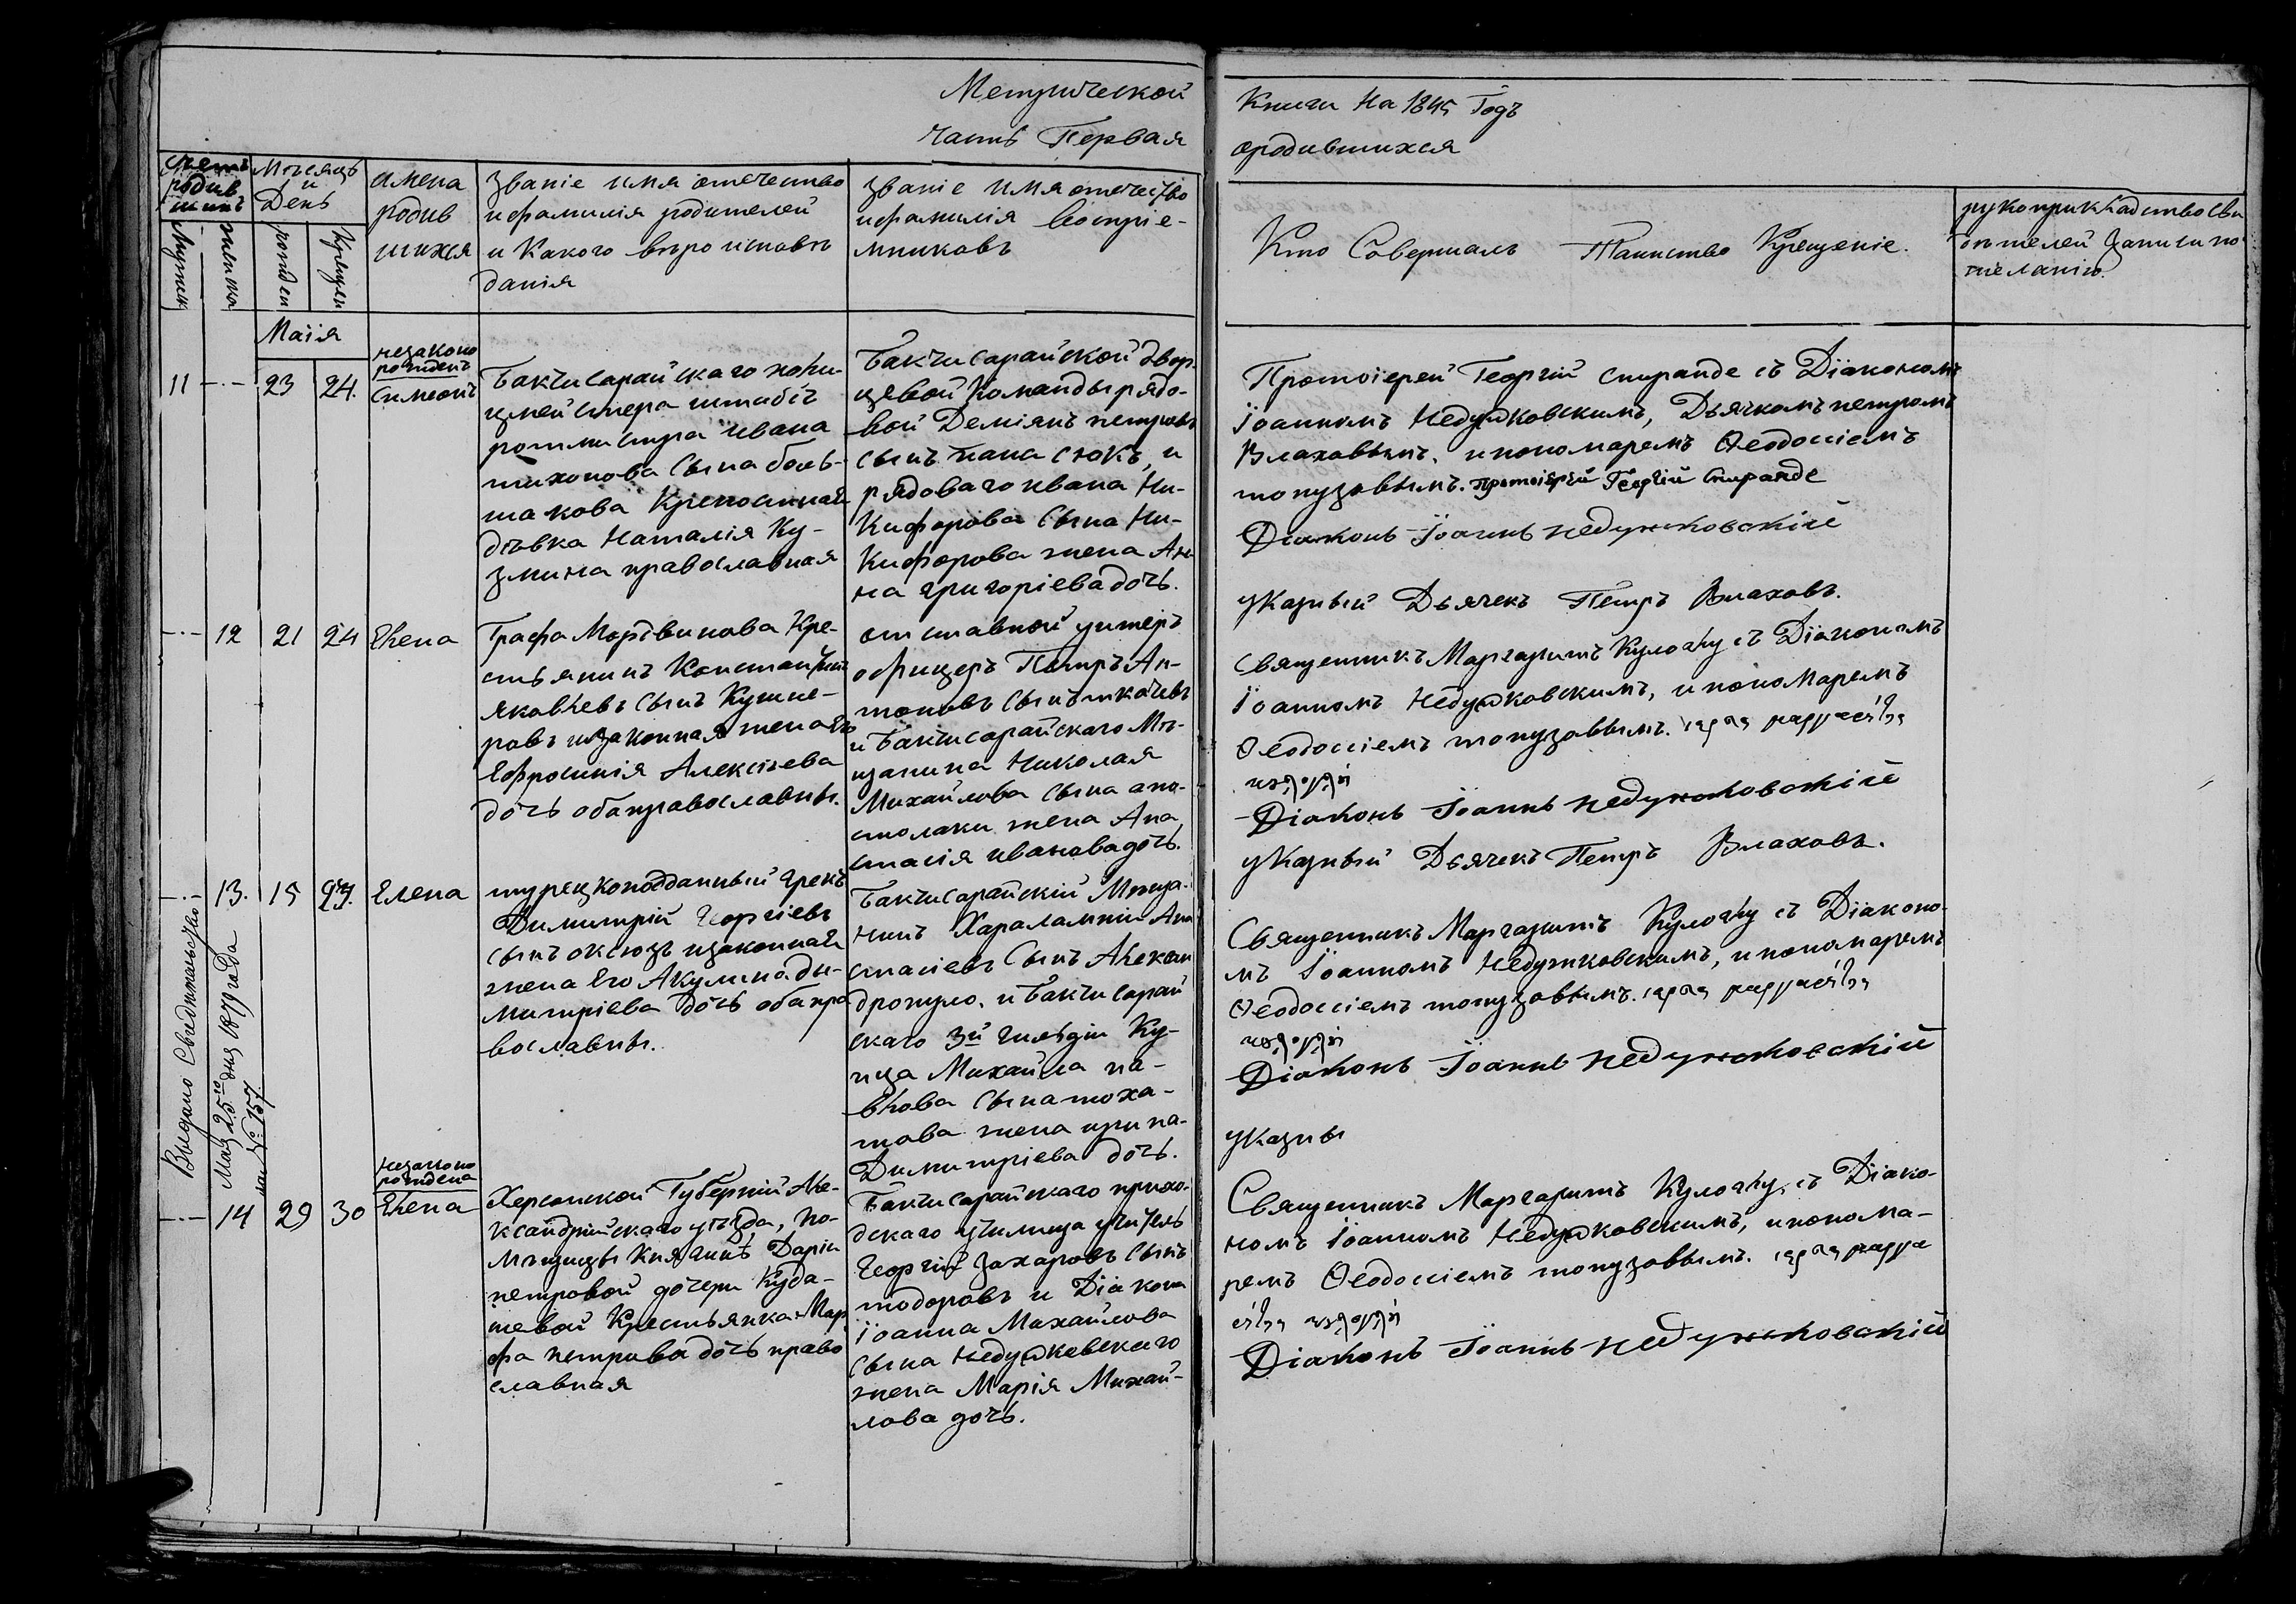 Метрической
часть Первая
Книги На 1845 Годъ
ородившихся
Счетъ родив шихъ
Мужеск
женска
Мѣсяцъ и День
рожден
Крещен
имена родив шихся
званіе имя отечество
ифамилія родителей
и Какого вѣро исповѣ
данія
званіе имя отечество
ифамилія воспріе-
мниковъ
Кто Совершалъ Таинство Крещеніе.
рукоприкладство сви
дѣтелей записи по
желанію.
Маія
11 23 24.
незаконо
рожденъ
Симеонъ
Бакчисарайскаго поли-
цмейстера штабсъ
ротмистра ивана
тихонова сына боль-
шакова Крепостная
дѣвка Наталія Ку-
змина православная
Бакчисарайской двор
цевой Команды рядо-
вой Деміянъ петровъ
сынъ папа сюкъ, и
рядоваго ивана Ни-
кифорова сына Ни-
кифорова жена Ан
на григоріева дочь.
Протоіерей Георгій спиранде съ Діакономъ
Іоанномъ Недужковскимъ, Дьячкомъ петромъ
Влаховымъ, ипономаремъ Ѳеодосіемъ
топузовымъ. протоіерей Георгій Спиранде
Діаконъ Іоаннъ недужковскій
указный Дьячекъ Петръ Влаховъ.
12 21 24 Елена
Графа Мордвинова Кре-
стьянинъ Константинъ
яковлевъ сынъ Кушне-
ровъ изаконная жена Его
Ефросинія Алексѣева
дочь оба православны.
отставной унтеръ
офицеръ Петръ Ан-
тоновъ сынъ ткачевъ
и Бакчисарайскаго Мѣ-
щанина Николая
Михайлова сына апо-
столаки жена Ана
стасія иванова дочь.
Священникъ Маргаритъ Кулогку съ Діакономъ
Іоанномъ Недужковскимъ, ипономаремъ
Ѳеодосіемъ топузовымъ.
Діаконъ Іоаннъ недужковскій
указный Дьячекъ Петръ Влаховъ.
13. 15 Елена
турецкоподданный грекъ
Димитрій Георгіевъ
сынъ оксюзъ изаконная
жена Его Акулина ди-
митріева дочь оба пра
вославны.
Бакчисарайскій Мѣща-
нинъ Харалампій Ана
стасіевъ сынъ Алексан
дропуло. и Бакчисарай
скаго 3й гильдіи Ку-
пца Михайла па-
влова сына тоха-
това жена ирина-
Димитріева дочь.
Священникъ Маргаритъ Кулогку съ Діаконо-
мъ Іоанномъ Недужковскимъ, ипономаремъ
Ѳеодосіемъ топузовымъ.
Діаконъ Іоаннъ недужковскій
указны
Выдано Свидѣтельство
Мая 25го дня года
за № 157.
14 29 30
незаконо
рождена
Елена
Херсонской Губерніи Але-
ксандрійскаго уѣзда, по-
мѣщицы Княгинѣ Даріи
петровой дочери Куда-
шевой Крестьянка Мар
фа петрова дочь право
славная
Бакчисарайскаго прихо-
дскаго училища учитель
Георгій Захаровъ сынъ
тодоровъ и Діакона
Іоанна Михайлова
сына Недужковскаго
жена Марія Михай-
лова дочь.
Священникъ Маргаритъ Кулогку, съ Діако-
номъ Іоанномъ Недужковскимъ, ипонома-
ремъ Ѳеодосіемъ топузовымъ.
Діаконъ Іоаннъ недужковскій